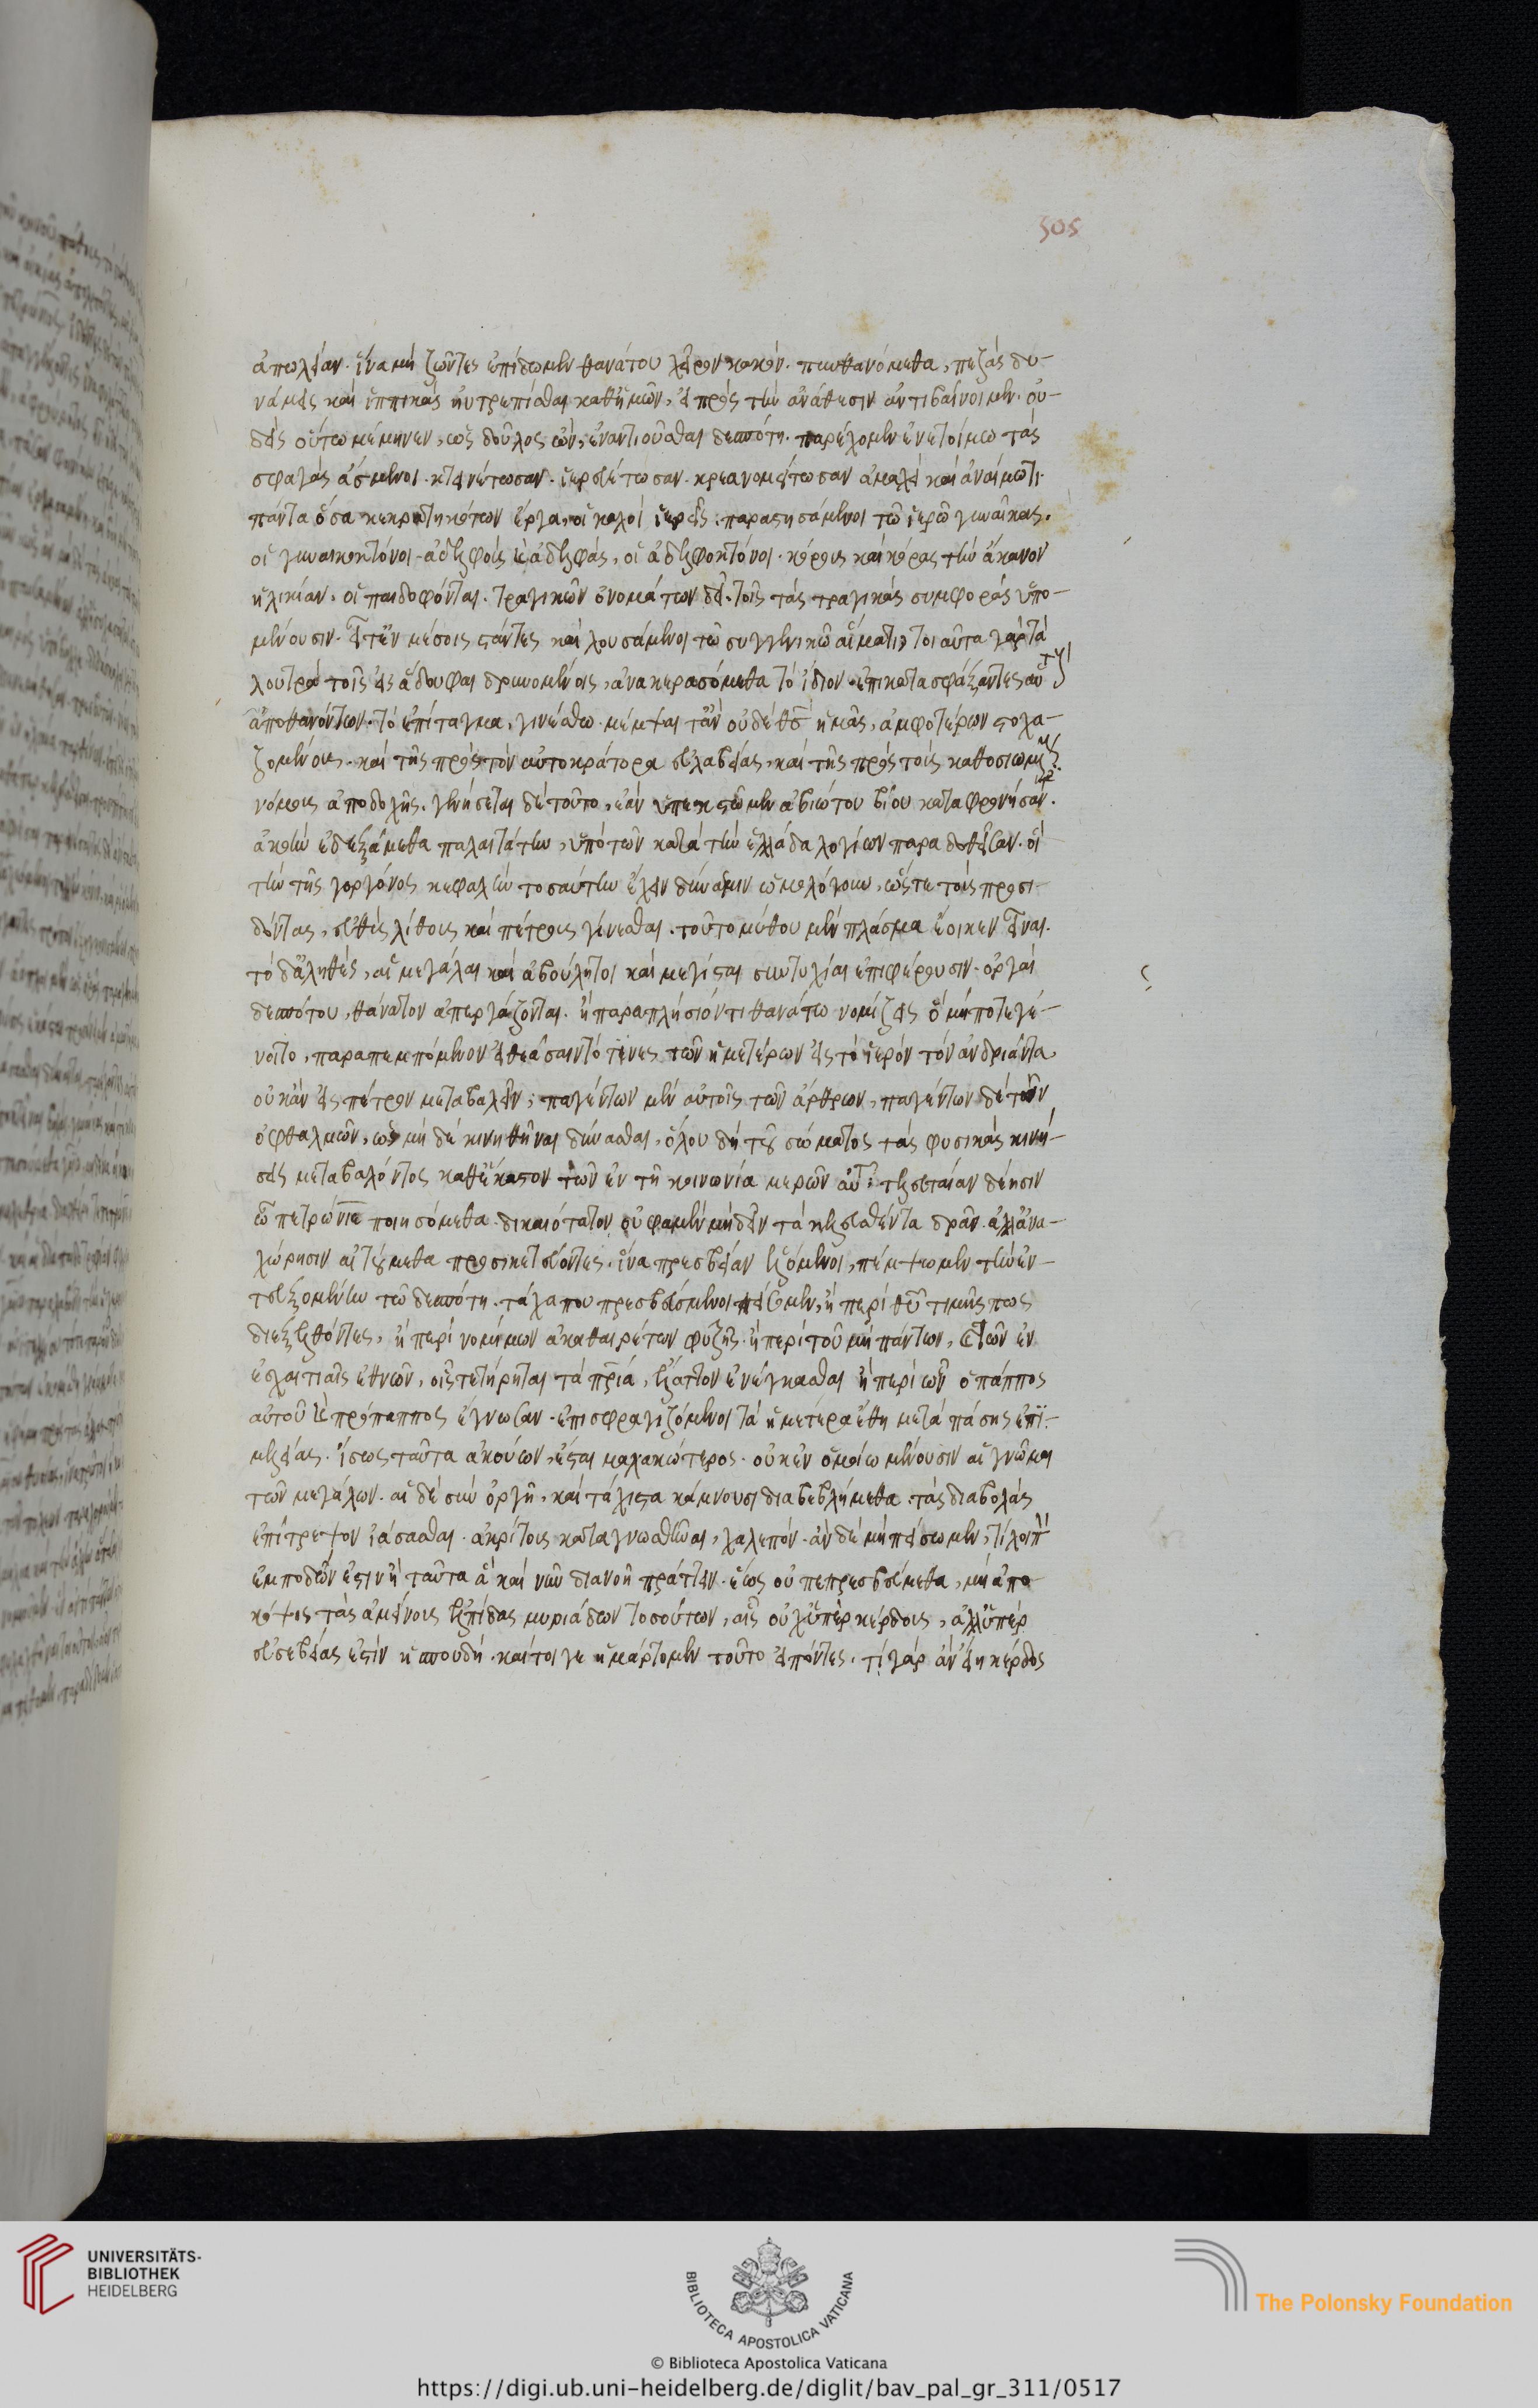 ἀπωλείαν. ἵνα μὴ ζῶντες ἐπίδωμεν θανάτου χεῖρον κακόν. πυνθανόμεθα, πεζὰς δυ-
νάμεις καὶ ἱππικὰς ηὐτρεπίσθαι καθ' ἡμῶν, εἰ πρὸς τὴν ἀνάθεσιν ἀντιβαίνοιμεν. οὐ-
δεὶς οὕτω μέμηνεν, ὡς δοῦλος ὢν, ἐναντιοῦσθαι δεσπότη. παρέχομεν ἐν ἑτοίμω τὰς
σφαγὰς ἄσμενοι. κτεινέτωσαν. ἱερευέτωσαν. κρεανομείτωσαν ἀμαχεὶ καὶ ἀναίμωτι.
πάντα ὅσα κεκρατηκότων ἔργα, οἱ καλοὶ ἱερεῖς. παραστησάμενοι τῶ ἱερῶ γυναῖκας.
οἱ γυναικοκτόνοι. ἀδελφοὺς καὶ ἀδελφὰς, οἱ ἀδελφοκτόνοι. κόρους καὶ κόρας τὴν ἄκακον
ἡλικίαν. οἱ παιδοφόνται. τραγικῶν ὀνομάτων δεῖ. τοῖς τὰς τραγικὰς συμφορὰς ὑπο-
μένουσιν. εἶτ' ἐν μέσοις στάντες καὶ λουσάμενοι τῶ συγγενικῶ αἵματι, τοιαῦτα γὰρ τὰ
λουτρὰ τοῖς εἰς ἅδου φαιδρυνομένοις, ἀνακερασόμεθα τὸ ἴδιον ἐπικατασφάξαντες αὑτούς
ἀποθανόντων. τὸ ἐπίταγμα, γινέσθω. μέμψαιτ' ἂν οὐδὲ θεὸς ἡμᾶς, ἀμφοτέρων στοχα-
ζομένους. καὶ τῆς πρὸς τὸν αὐτοκράτορα εὐλαβείας, καὶ τῆς πρὸς τοὺς καθοσιωμένους
νόμους ἀποδοχῆς. γενήσεται δὲ τοῦτο, ἐὰν ὑπεκστῶμεν ἀβιώτου βίου καταφρονήσαντες.
ἀκοὴν ἐδεξάμεθα παλαιτάτην, ὑπὸ τῶν κατὰ τὴν ἑλλάδα λογίων παραδοθεῖσαν. οἳ
τὴν τῆς γοργόνος κεφαλὴν τοσαύτην ἔχειν δύναμιν ὡμολόγουν, ὥστε τοὺς προσι-
δόντας, εὐθὺς λίθους καὶ πέτρους γίνεσθαι. τοῦτο μύθου μὲν πλάσμα ἔοικεν εἶναι.
τὸ δ' ἀληθὲς, αἱ μεγάλαι καὶ ἀβούλητοι καὶ μέγισται συντυχίαι ἐπιφέρουσιν. ὀργαὶ
δεσπότου, θάνατον ἀπεργάζονται. ἢ παραπλήσιόν τι θανάτω νομίζεις ὃ μήποτε γέ-
νοιτο, παραπεμπόμενον εἰ θεάσαιντό τινες τῶν ἡμετέρων εἰς τὸ ἱερὸν τὸν ἀνδριάντα.
οὐκ ἂν εἰς πέτρον μεταβαλεῖν; παγέντων μὲν αὐτοῖς τῶν ἄρθρων, παγέντων δὲ τῶν
ὀφθαλμῶν, ὡς μὴ δὲ κινηθῆναι δύνασθαι, ὅλου δὴ τοῦ σώματος τὰς φυσικὰς κινή-
σεις μεταβαλόντος καθ' ἕκαστον τῶν ἐν τῆ κοινωνία μερῶν αὐτοῦ; τελευταίαν δέησιν
ὦ πετρώνιε ποιησόμεθα. δικαιότατον οὔ φαμεν μὴ δεῖν τὰ κελευσθέντα δρᾶν. ἀλλ' ἀνα-
χώρησιν αἰτούμεθα προσικετεύοντες. ἵνα πρεσβείαν ἑλόμενοι, πέμψωμεν τὴν ἐν-
τευξομένην τῶ δεσπότη. τάχα που πρεσβευσάμενοι πείσομεν, ἢ περὶ θεοῦ τιμῆς πως
διεξελθόντες, ἢ περὶ νομίμων ἀκαθαιρέτων φυλῆς. ἢ περὶ τοῦ μὴ πάντων, καὶ τῶν ἐν
ἐσχατιαῖς ἐθνῶν, οἷς τετήρηται τὰ πάτρια, ἔλαττον ἐνέγκασθαι ἢ περὶ ὧν ὁ πάππος
αὐτοῦ καὶ πρόπαππος ἔγνωσαν. ἐπισφραγιζόμενοι τὰ ἡμέτερα ἔθη μετὰ πάσης ἐπι-
μελείας. ἴσως ταῦτα ἀκούων, ἔσται μαλακώτερος. οὐκ ἐν ὁμοίω μένουσιν αἱ γνῶμαι
τῶν μεγάλων. αἱ δὲ σὺν ὀργῆ, καὶ τάχιστα κάμνουσι διαβεβλήμεθα. τὰς διαβολὰς
ἐπίτρεψον ἰάσασθαι. ἀκρίτους καταγνωσθῆναι, χαλεπόν. ἂν δὲ μὴ πείσωμεν, τί λοιπὸν
ἐμποδών ἐστιν ἢ ταῦτα ἃ καὶ νῦν διανοῆ πράττειν. ἕως οὐ πεπρεσβεύμεθα, μὴ ἀπο
κόψης τὰς ἀμείνους ἐλπίδας μυριάδων τοσούτων, αἷς οὐχ ὑπὲρ κέρδους, ἀλλ' ὑπὲρ
εὐσεβείας ἐστὶν ἡ σπουδή. καίτοι γε ἡμάρτομεν τοῦτο εἰπόντες. τί γὰρ ἂν εἴη κέρδος
505
UNIVERSITÄTS-
BIBLIOTHEK
HEIDELBERG
BIBLIOTECA APOSTOLICA VATICANA
The Polonsky Foundation
© Biblioteca Apostolica Vaticana
https://digi.ub.uni-heidelberg.de/diglit/bav_pal_gr_311/0517